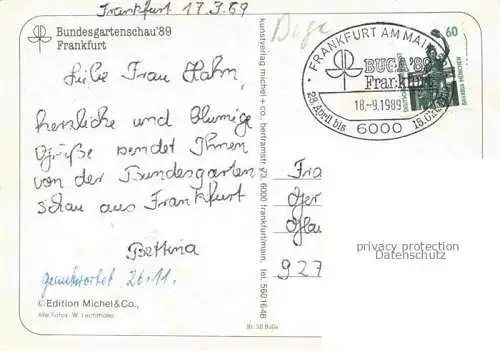 Frankfurt 17.9.89
Bundesgartenschau'89
Frankfurt
Liebe Frau Hahn,
herzliche und blumige
Grüße sendet Ihnen
von der Bundesgarten
schau aus Frankfurt
Bettina
geantwortet 26.11.
©Edition Michel & Co.,
Alle Fotos: W. Lechthaler
kunstverlag michel + co., bertramstr. 73, 6000 frankfurt/main, tel. 5601648
FRANKFURT AM MAIN
BUGA '89
Frankfurt
18.-9.1989
28. April bis
6000
60
Fra
Ger
927
privacy protection
Datenschutz